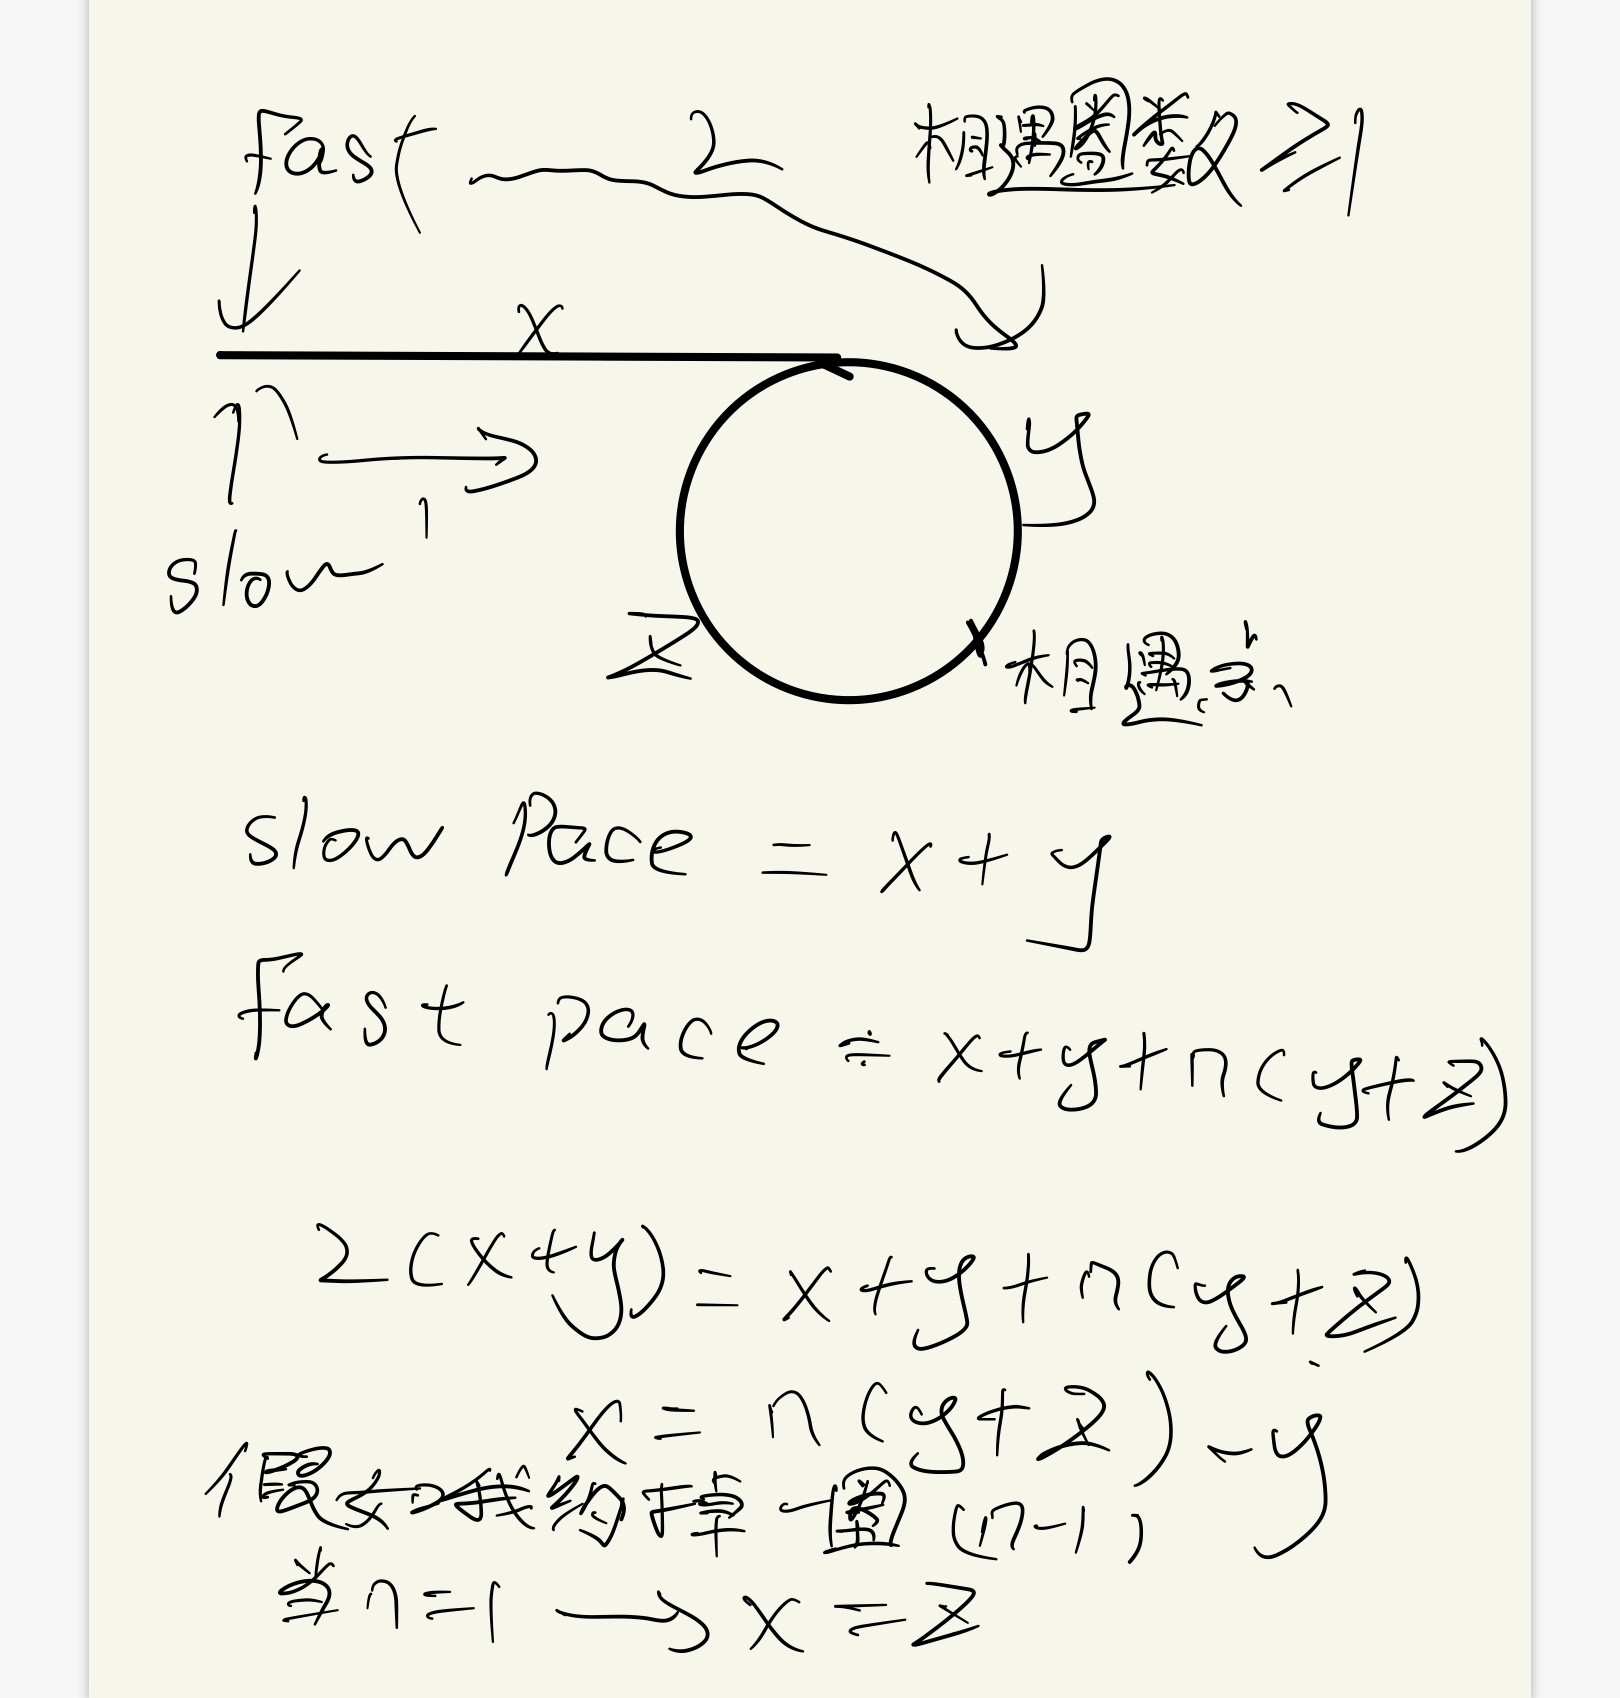 fast 2 相遇圈数 ≥1
x
y
1
slow
z
相遇点
slow Pace = x+y
fast pace = x+y+n(y+z)
2(x+y) = x+y+n(y+z)
x = n(y+z)-y
假如我约掉一圈(n-1)
当n=1 → x=z